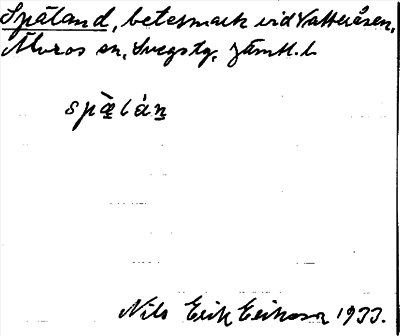 Späland, betesmark vid Vatteråsen,
Älvros sn, Svegs tg, Jämtl. l.
spæ̀lán
Nils Erik Eriksson 1933.